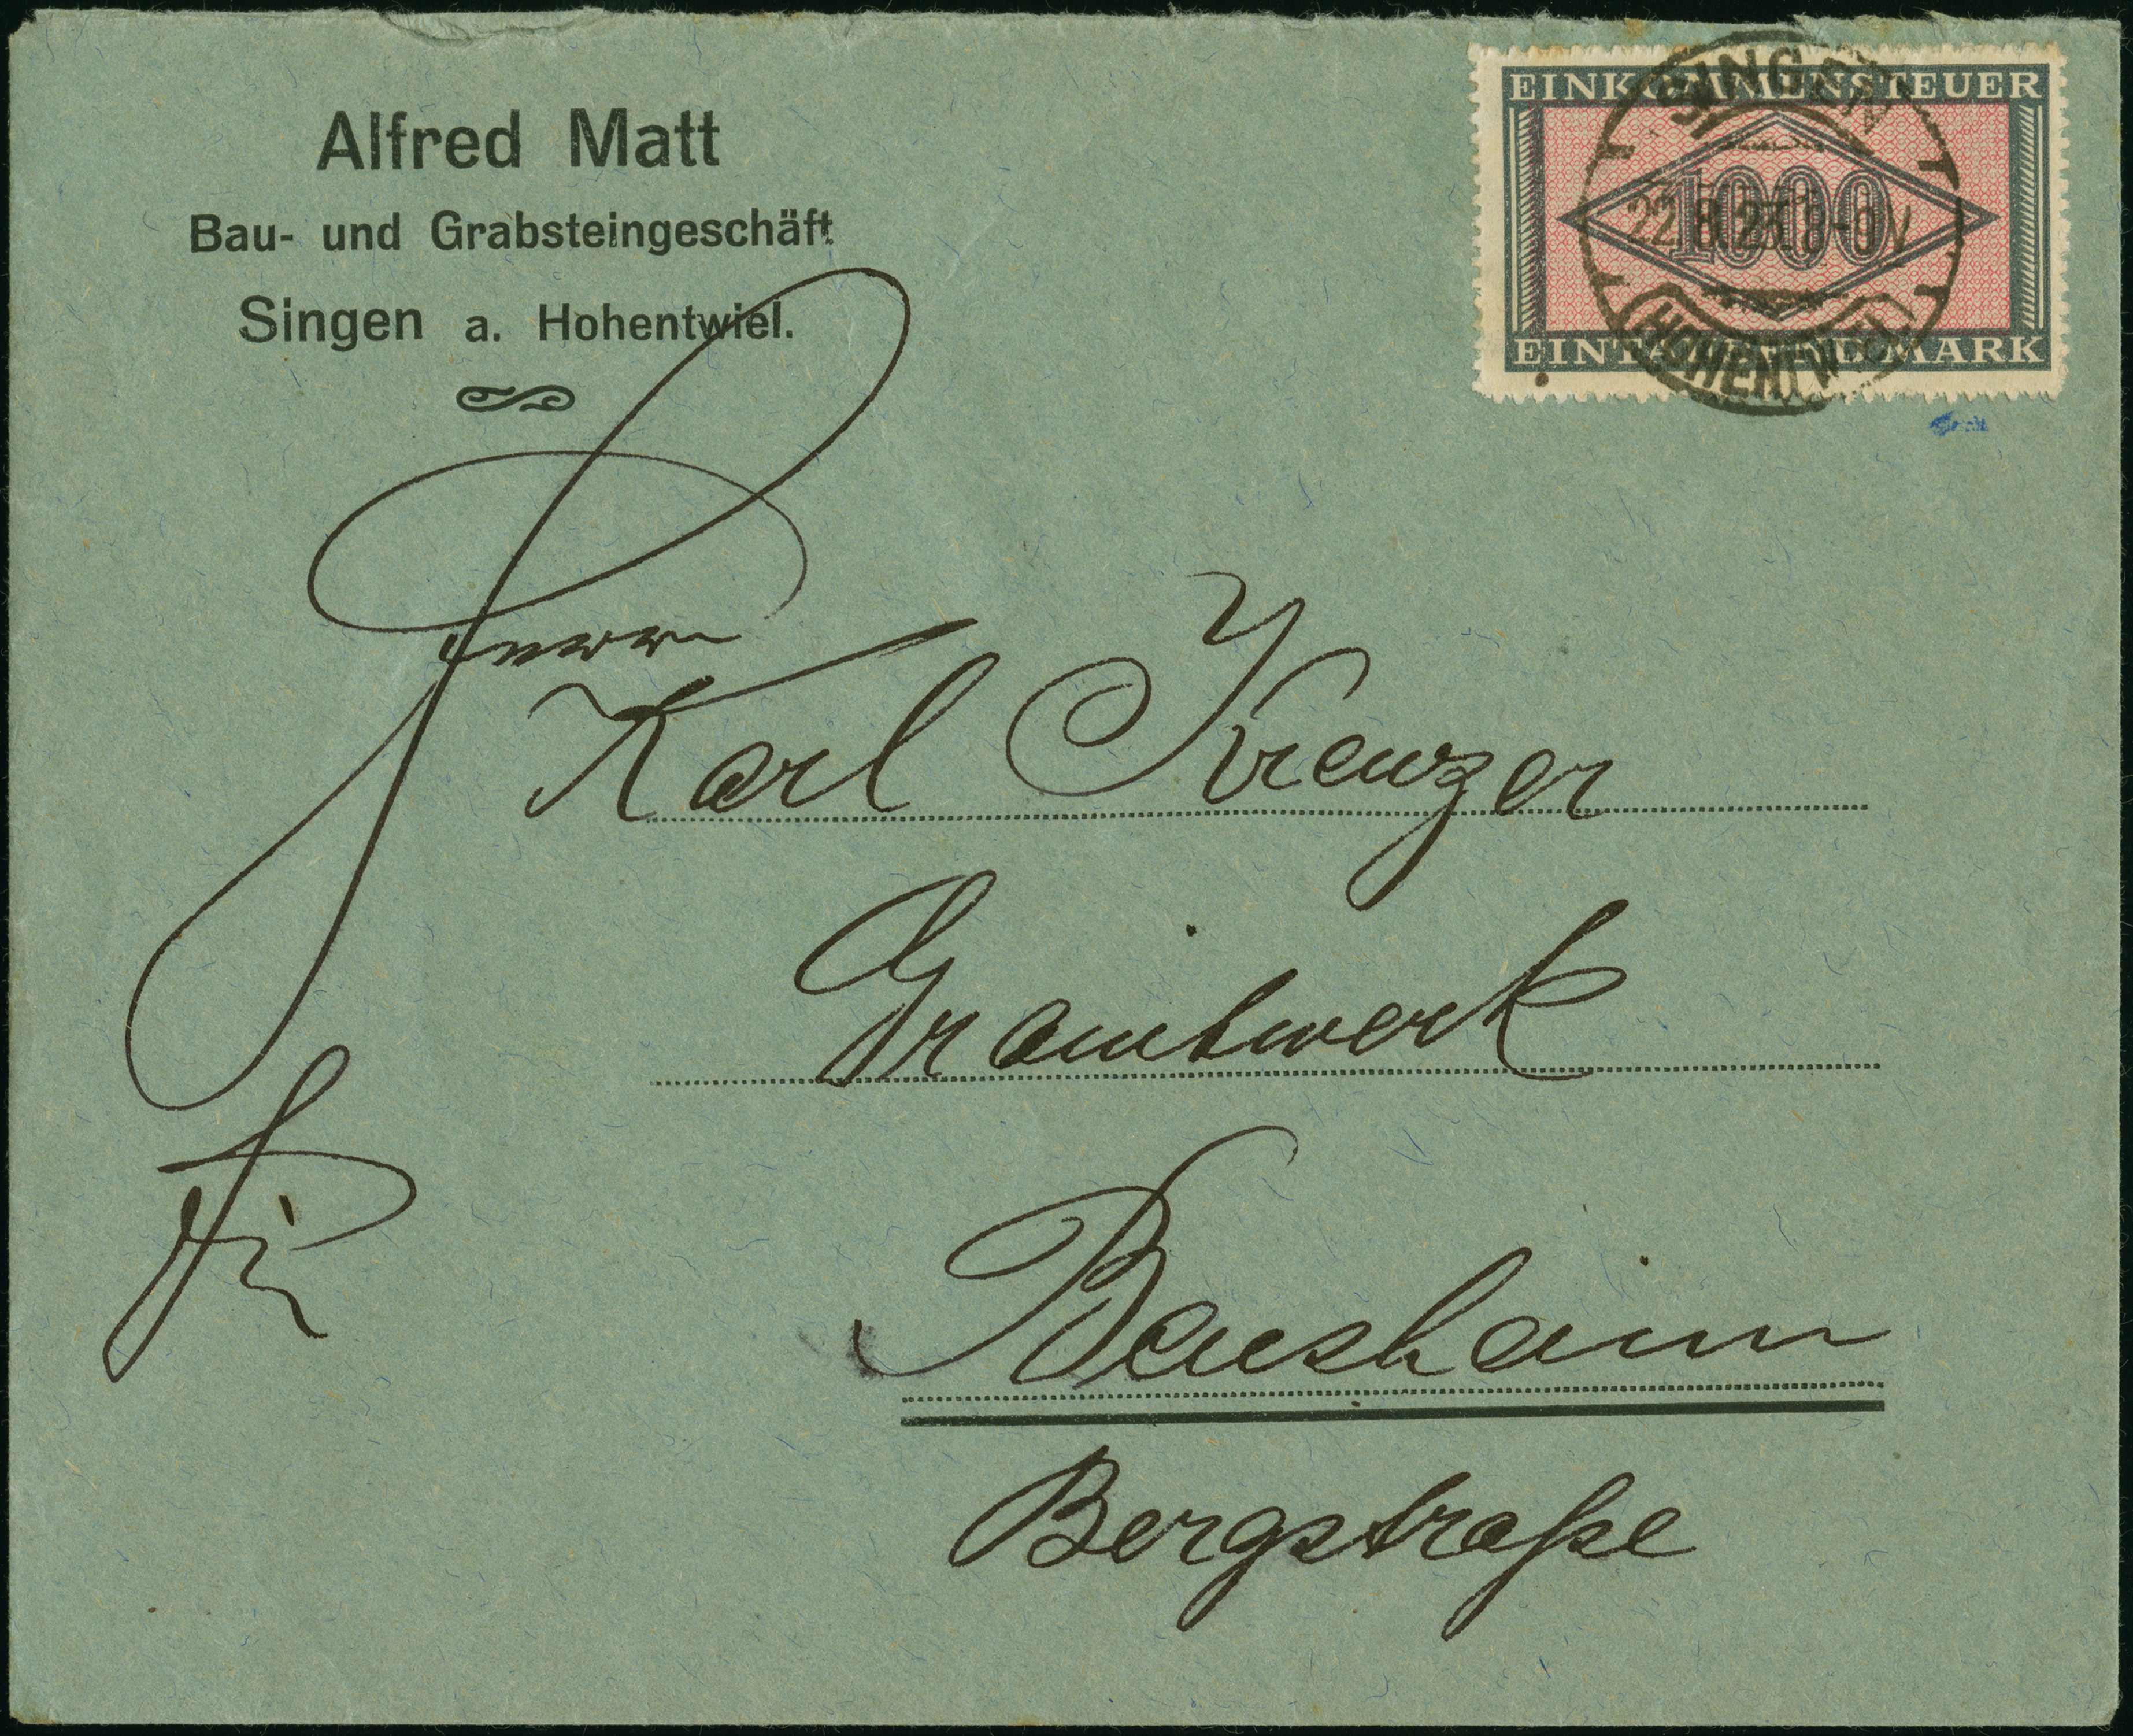 Alfred Matt
Bau- und Grabsteingeschäft
Singen a. Hohentwiel.
EINKOMMENSTEUER
1000
EINTAUSEND MARK
SINGEN
22.8.23.8-9V
HOHENTWIEL
Herrn
Karl Kreuzer
Granitwerk
Bensheim
Bergstraße